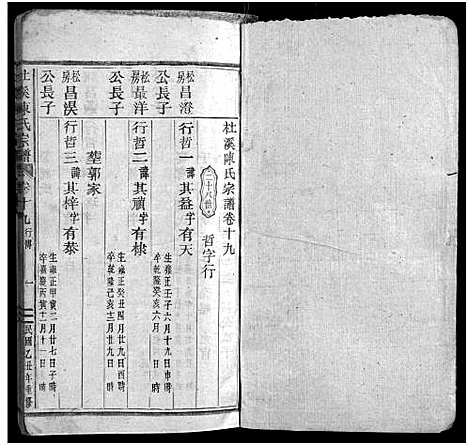 杜溪陳氏宗譜卷十九
二十八世 哲字行
松房昌澄公長子
行哲一諱其益字有天
生雍正壬子六月十九日申時
卒乾隆癸亥六月
松房最洋公長子
行哲二諱其禎字有棣
生雍正癸丑四月廿九日酉時
卒乾隆己亥十二月廿九日
松房昌淏公長子
行哲三諱其梓字有恭
生雍正甲寅二月廿七日子時
卒嘉慶丙寅十二月十一日時
塟郭家
杜溪陳氏宗譜
卷十九
行傳
一
民國乙丑年重修